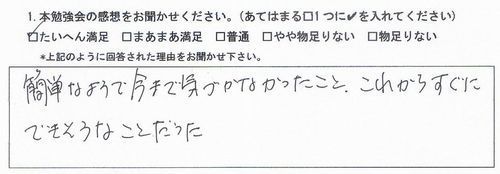 1. 本勉強会の感想をお聞かせください。(あてはまる□1つに✔を入れてください)
☑たいへん満足 □まあまあ満足 □普通 □やや物足りない □物足りない
*上記のように回答された理由をお聞かせ下さい。
簡単なようで今まで気づかなかったこと、これからすぐに
できそうなことだった